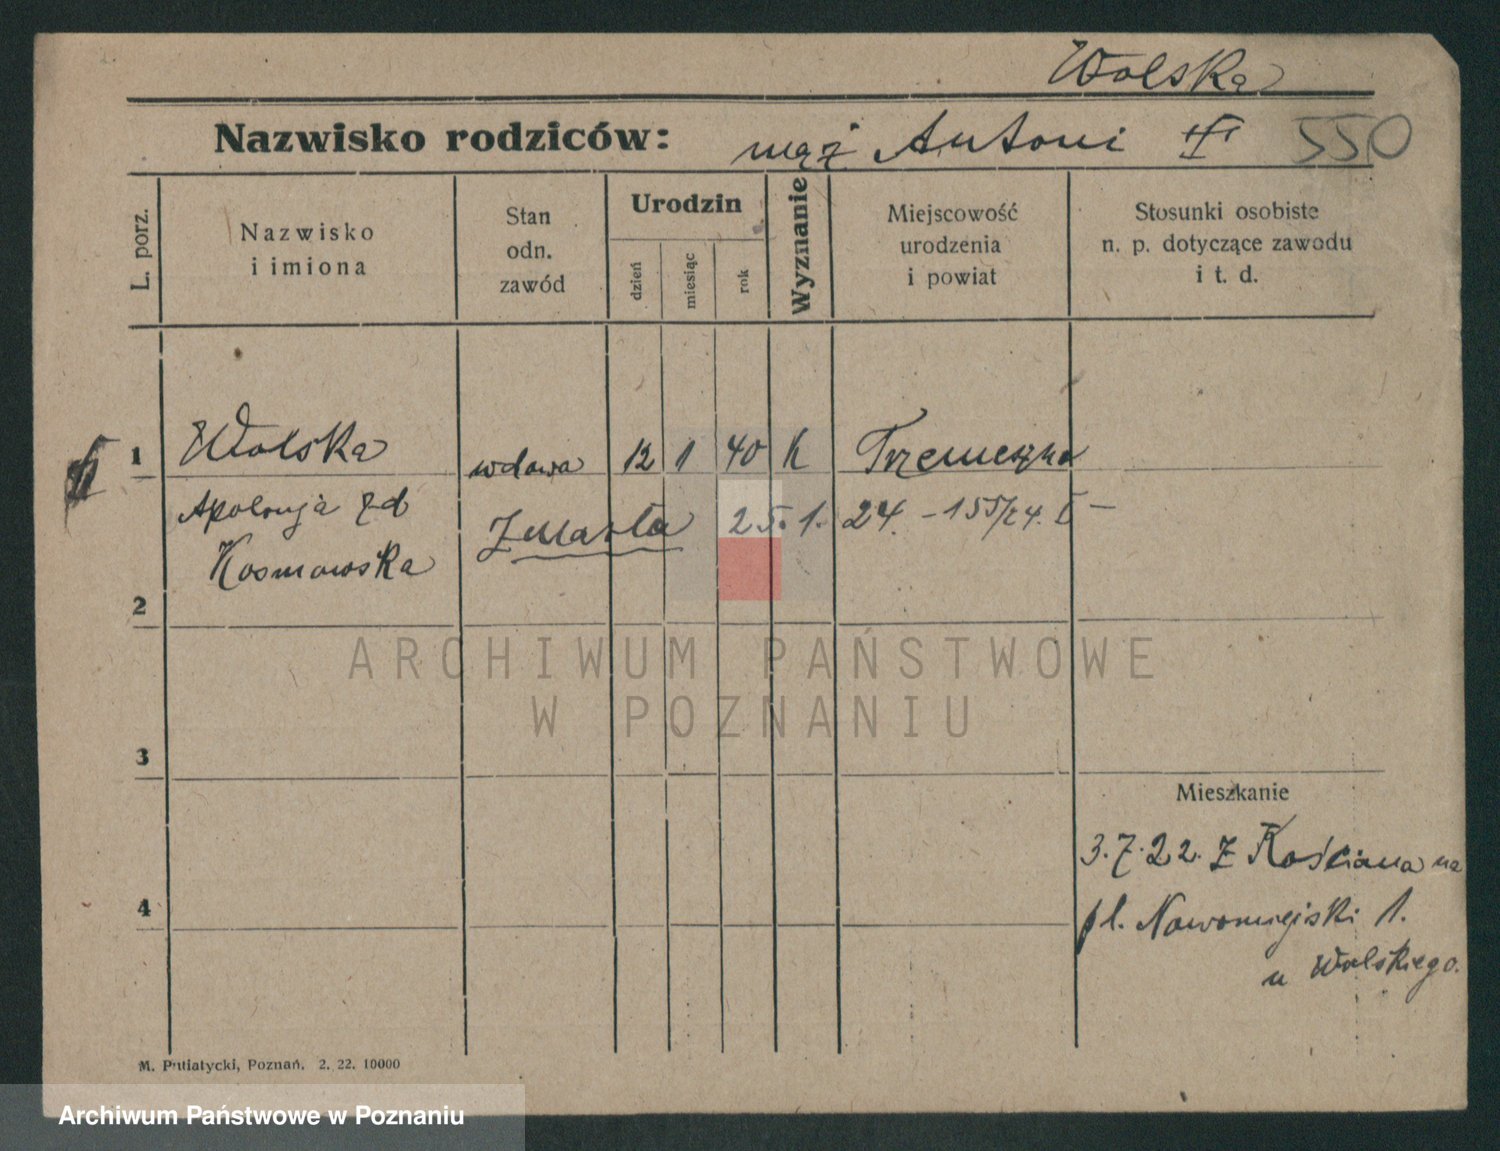 Wolska
Nazwisko rodziców: mąż Antoni 550
L. porz.
Nazwisko
i imiona
Stan
odn.
zawód
Urodzin
dzień
miesiąc
rok
Wyznanie
Miejscowość
urodzenia
i powiat
Stosunki osobiste
n. p. dotyczące zawodu
i t. d.
1 Wolska wdowa 12 1 40 k Trzemeszno
Apolonja zd Zmarła 25. 1. 24. - 155/24. I -
Kosmowska
2
ARCHIWUM PAŃSTWOWE
W POZNANIU
3
Mieszkanie
3. 7. 22. z Kościana na
4
pl. Nowomiejski 1.
u Wolskiego.
M. Putiatycki, Poznań. 2. 22. 10000
Archiwum Państwowe w Poznaniu